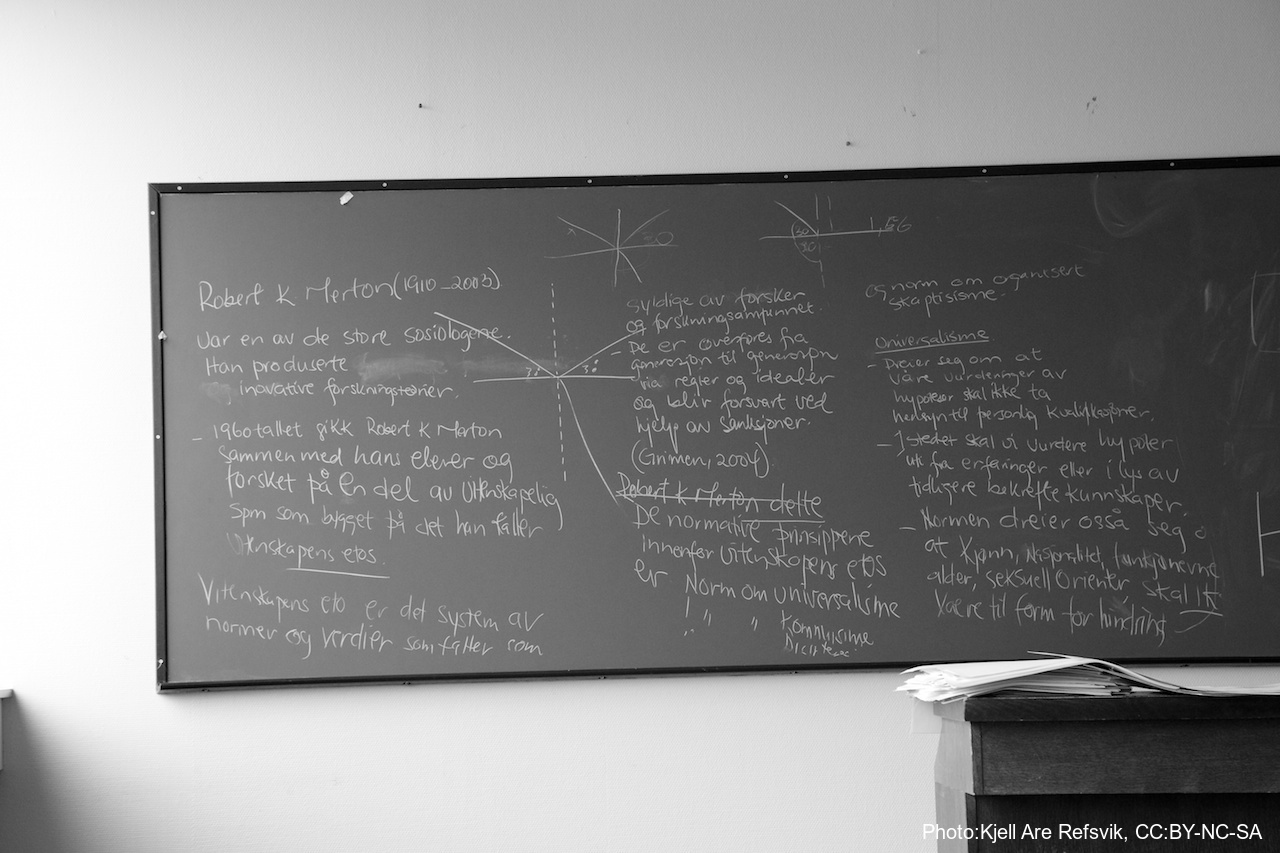 Robert K Merton (1910-2003)
Var en av de store sosiologene.
Han produserte
inovative forskningsteorier.
- 1960 tallet gikk Robert K Merton
sammen med hans elever og
forsket på en del av vitenskapelig
spm som bygget på det han faller
Vitenskapens etos.
Vitenskapens eto er det system av
normer og verdier som fatter som
30
3° 3°
gyldige av forsker
og forskningsamfunnet.
- De er overføres fra
generasjon til generasjon
via regler og idealer
og blir forsvart ved
hjelp av sanksjoner.
(Grimen, 2004)
Robert K Merton dette
De normative prinsippene
innenfor vitenskapens etos
er Norm om universalisme
" " " Kommunisme
og norm om organisert
skaptisisme.
Universalisme
- Dreier seg om at
våre vurderinger av
hypoteser skal ikke ta
hensyn til personlig kvalifikasjoner.
- Istedet skal vi vurdere hypoteser
ut fra erfaringer eller i lys av
tidligere bekrefte kunnskaper.
- Normen dreier osså seg o
at kjønn, nasjonalitet,
alder, seksuell orienter, skal ik
være til form for hindring
Photo:Kjell Are Refsvik, CC:BY-NC-SA